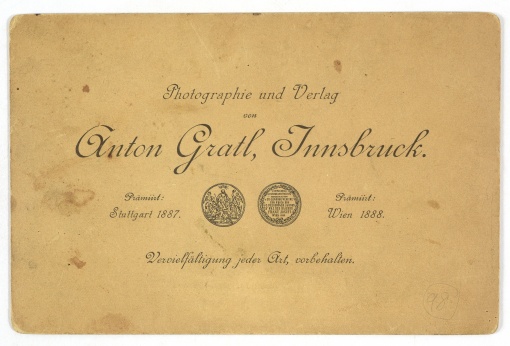 Photographie und Verlag
von
Anton Gratl, Innsbruck.
Prämiirt:
Stuttgart 1887.
Prämiirt:
Wien 1888.
Vervielfältigung jeder Art, vorbehalten.